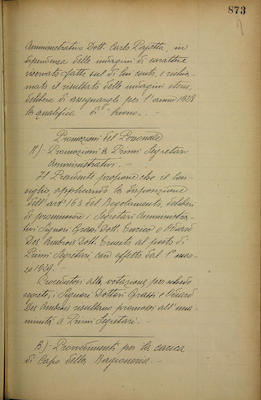 873
Amministrativo Dott. Carlo Pagetta, in
dipendenza delle indagini di carattere
riservato fatte sul di lui conto, e richia-
mato il risultato delle indagini stesse,
delibera di assegnargli per l'anno 1938
la qualifica di "buono". -
Promozioni del Personale
A) - Promozioni a Primi Segretari
Amministrativi. -
Il Presidente propone che il Con-
siglio, applicando la disposizione
dell'art. 163 del Regolamento, deliberi
di promuovere i Segretari Amministra-
tivi Signori Grassi Dott. e
Des Ambrois Dott. al posto di
Primi Segretari, con effetto dal 1° mar-
zo 1939. -
Procedutosi alla votazione per scheda
segreta, i Signori Dottori Grassi e
Des Ambrois risultano promossi all'una-
nimità a Primi Segretari.
B) - Provvedimenti per la carica
di Capo della Ragioneria. -